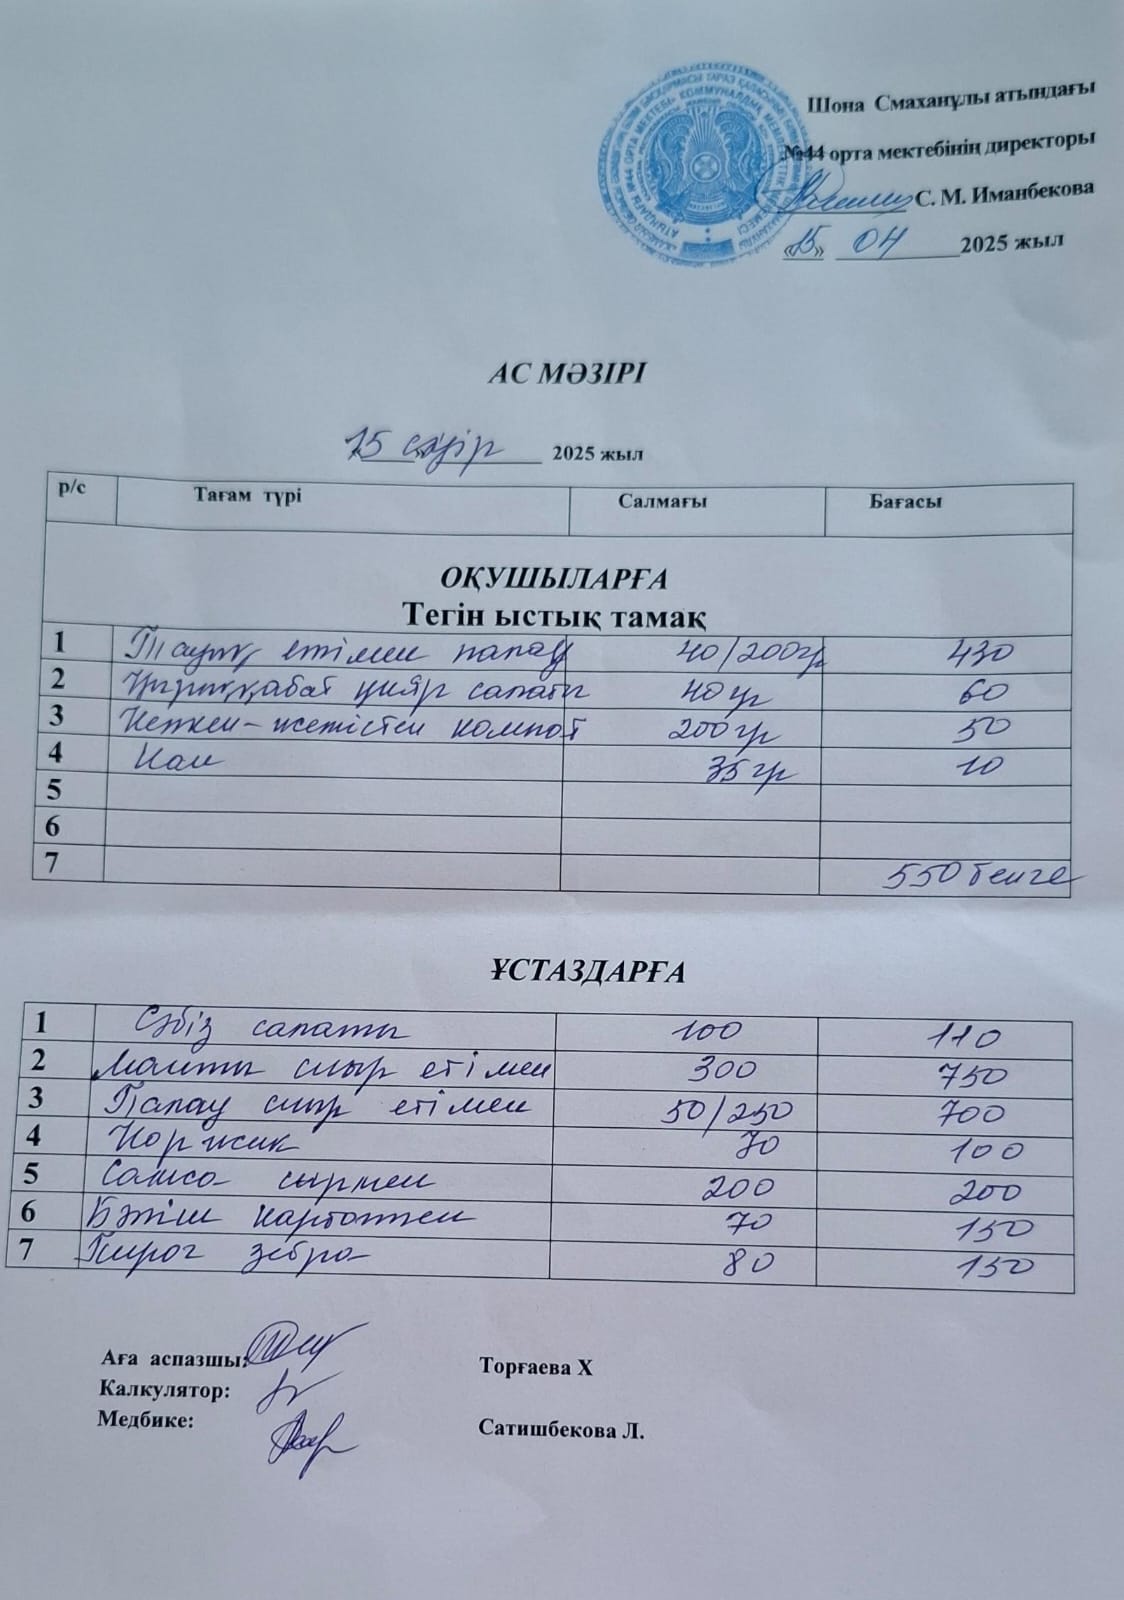 Шона Смаханұлы атындағы
№44 орта мектебінің директоры
С. М. Иманбекова
«15» 04 2025 жыл
АС МӘЗІРІ
15 сәуір 2025 жыл
р/с Тағам түрі Салмағы Бағасы
ОҚУШЫЛАРҒА
Тегін ыстық тамақ
1 Тауық етімен палау 40/200гр 430
2 Қырыққабат қияр салаты 40гр 60
3 Кепкен-жемістен компот 200гр 50
4 Нан 35гр 10
5
6
7 550 тенге
ҰСТАЗДАРҒА
1 Сәбіз салаты 100 110
2 Манты сиыр етімен 300 750
3 Палау сиыр етімен 50/250 700
4 Коржик 70 100
5 Самса сырмен 200 200
6 Бәтіш картоппен 70 150
7 Пирог зебра 80 150
Аға аспазшы: Торғаева Х
Калкулятор:
Медбике: Сатишбекова Л.